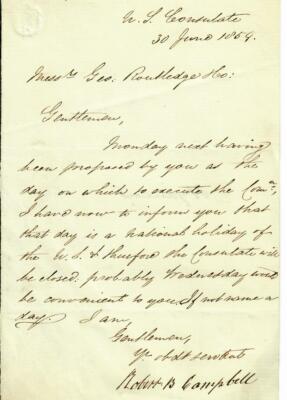 U. S. Consulate
30 June 1859.
Messrs Geo: Routledge & Co:
Gentlemen,
Monday next having
been proposed by you as the
day on which to execute the Comn,
I have now to inform you that
that day is a national holiday of
the U. S. & therefore the Consulate will
be closed. probably Wednesday will
be convenient to you. If not name a
day. I am,
Gentlemen,
Yr obdt servant
Robert B Campbell